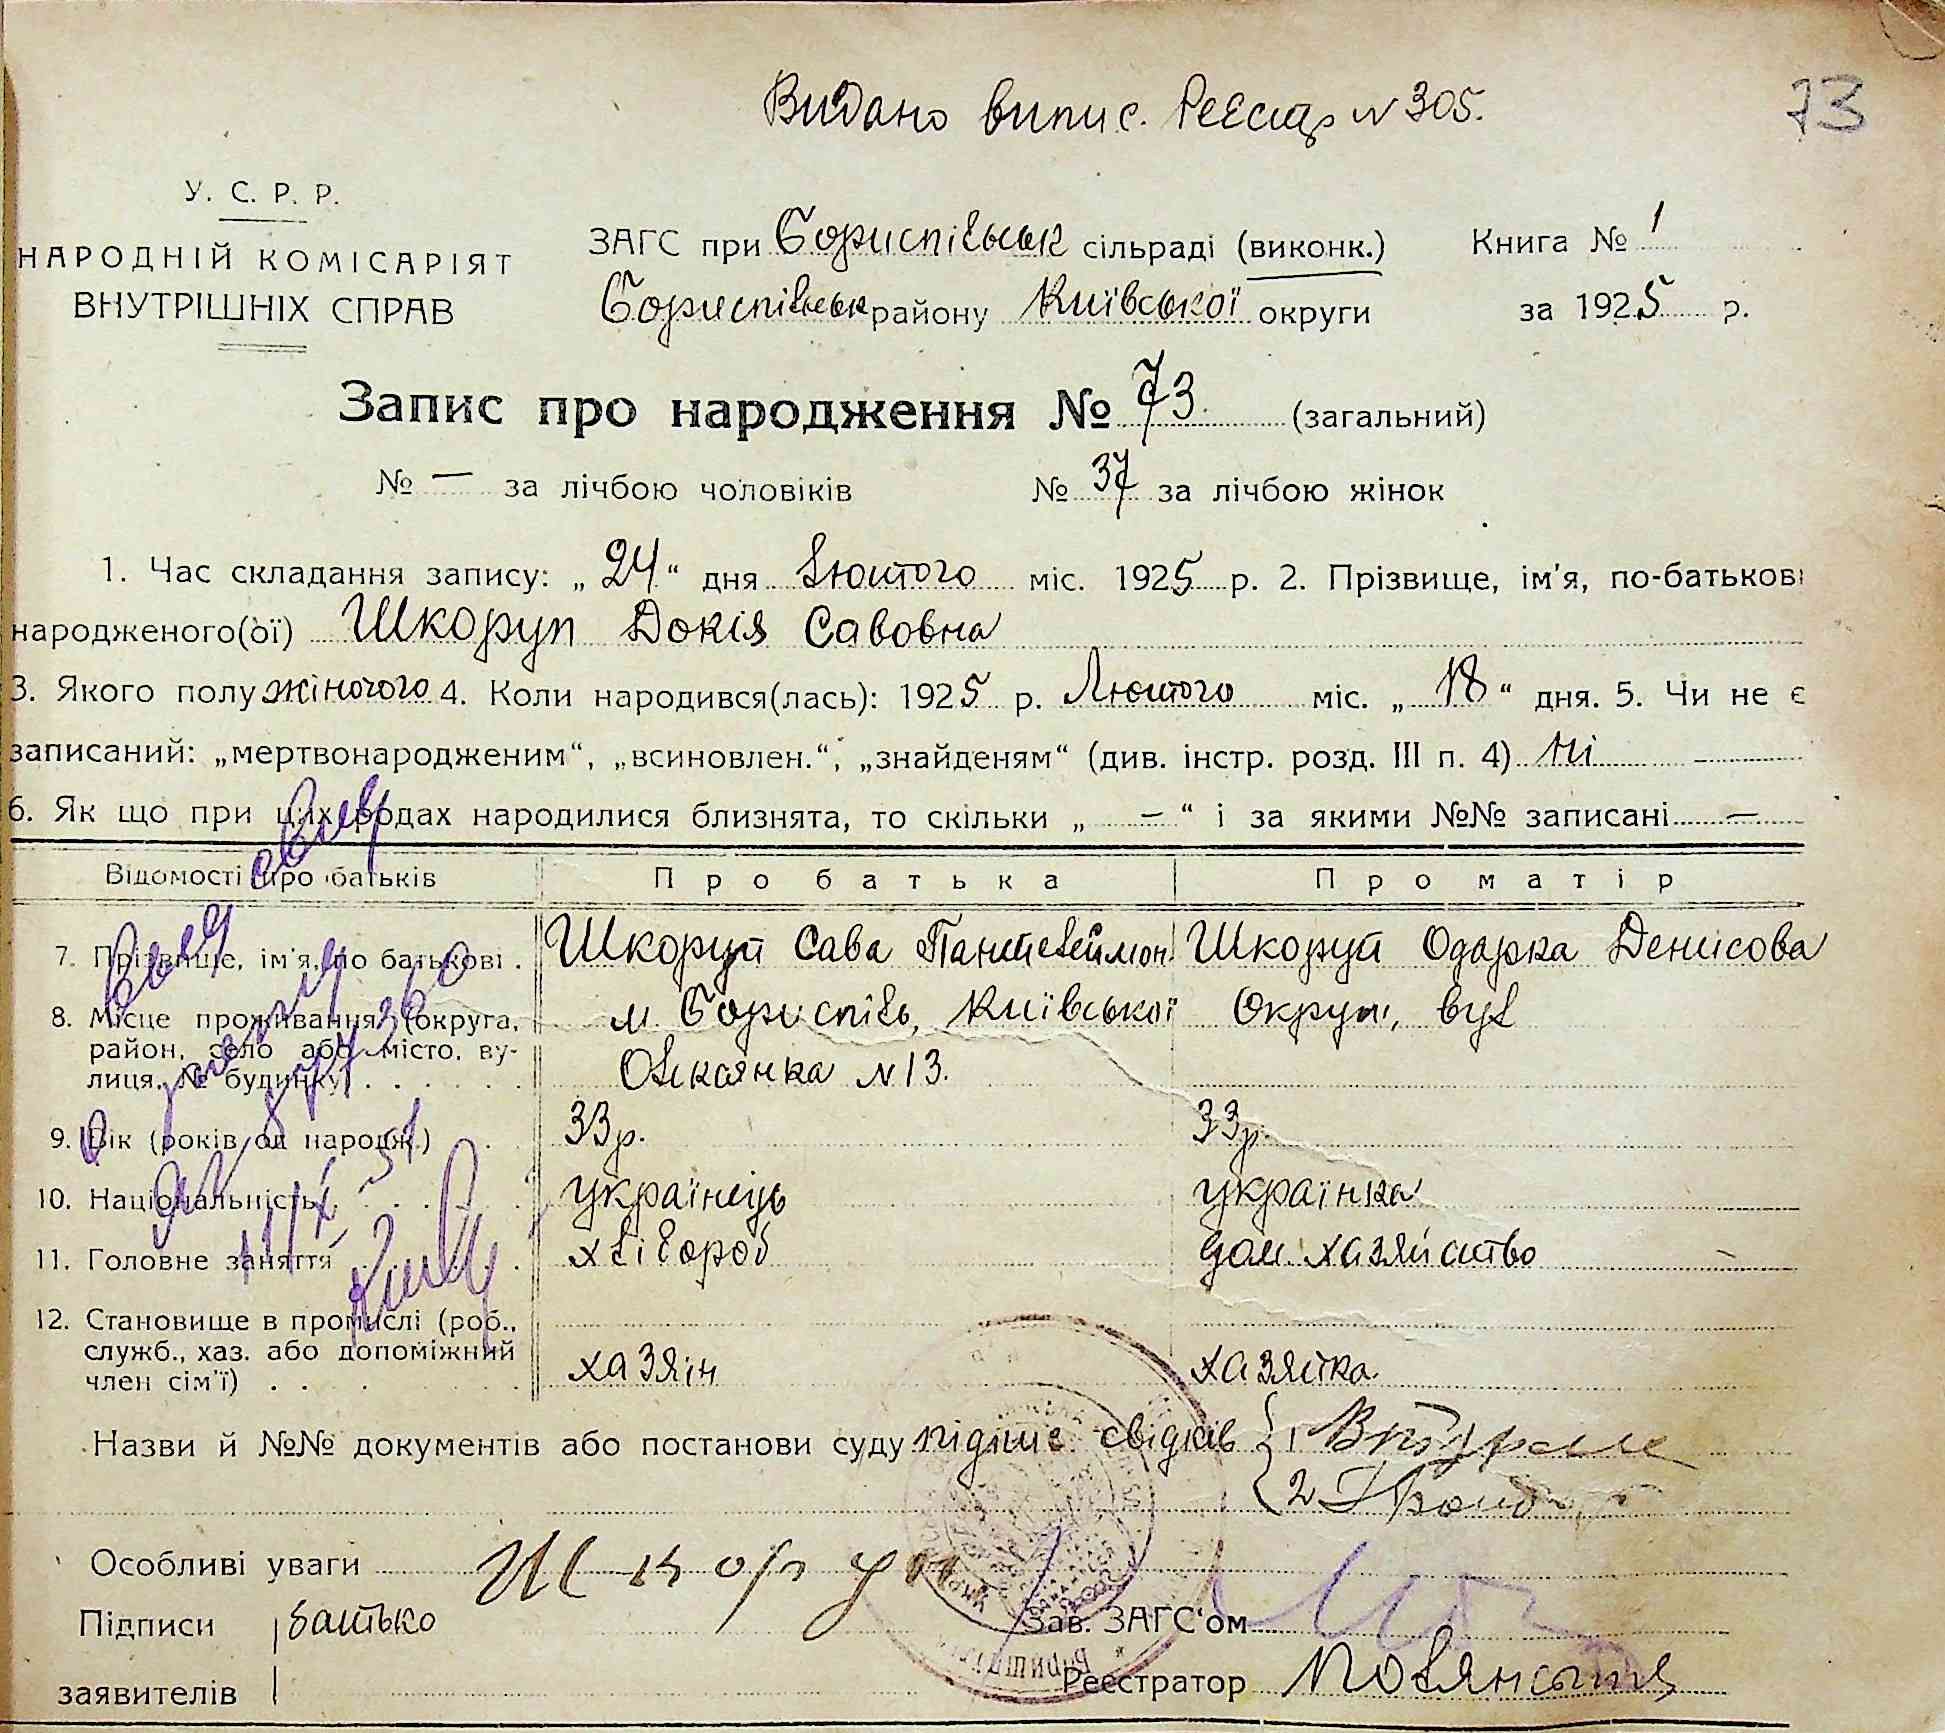 Видано випис. Реєстр N 305.
73
У. С. Р. Р.
НАРОДНІЙ КОМІСАРІЯТ
ВНУТРІШНІХ СПРАВ
ЗАГС при Бориспільськ сільраді (виконк.)
Бориспільськ району Київської округи
Книга № 1
за 1925 р.
Запис про народження № 73. (загальний)
№ — за лічбою чоловіків № 37 за лічбою жінок
1. Час складання запису: „24“ дня Лютого міс. 1925 р. 2. Прізвище, ім'я, по-батькові
народженого(ої) Шкоруп Докія Савовна
3. Якого полу жіночого 4. Коли народився(лась): 1925 р. Лютого міс. „18“ дня. 5. Чи не є
записаний: „мертвонародженим“, „всиновлен.“, „знайденям“ (див. інстр. розд. III п. 4) Ні
6. Як що при цих родах народилися близнята, то скільки „ — “ і за якими №№ записані —
Відомості про батьків Про батька Про матір
7. Прізвище, ім'я, по батькові . Шкоруп Сава Пантелеймон. Шкоруп Одарка Денисова
8. Місце проживання (округа, м. Бориспіль, Київської Округи, вул
район, село або місто, ву-
лиця, № будинку) . . . . . Олксянка N 13.
9. Вік (років од народж.) . 33 р. 33 р.
10. Національність . . . . українець українка
11. Головне заняття . . . . хлібороб дом. хазяйство
12. Становище в промислі (роб.,
служб., хаз. або допоміжний
член сім'ї) . . . хазяін хазяйка
Назви й №№ документів або постанови суду підпис свідків 1
2
Особливі уваги Шкоруп
Підписи батько Зав. ЗАГС'ом
заявителів Реєстратор